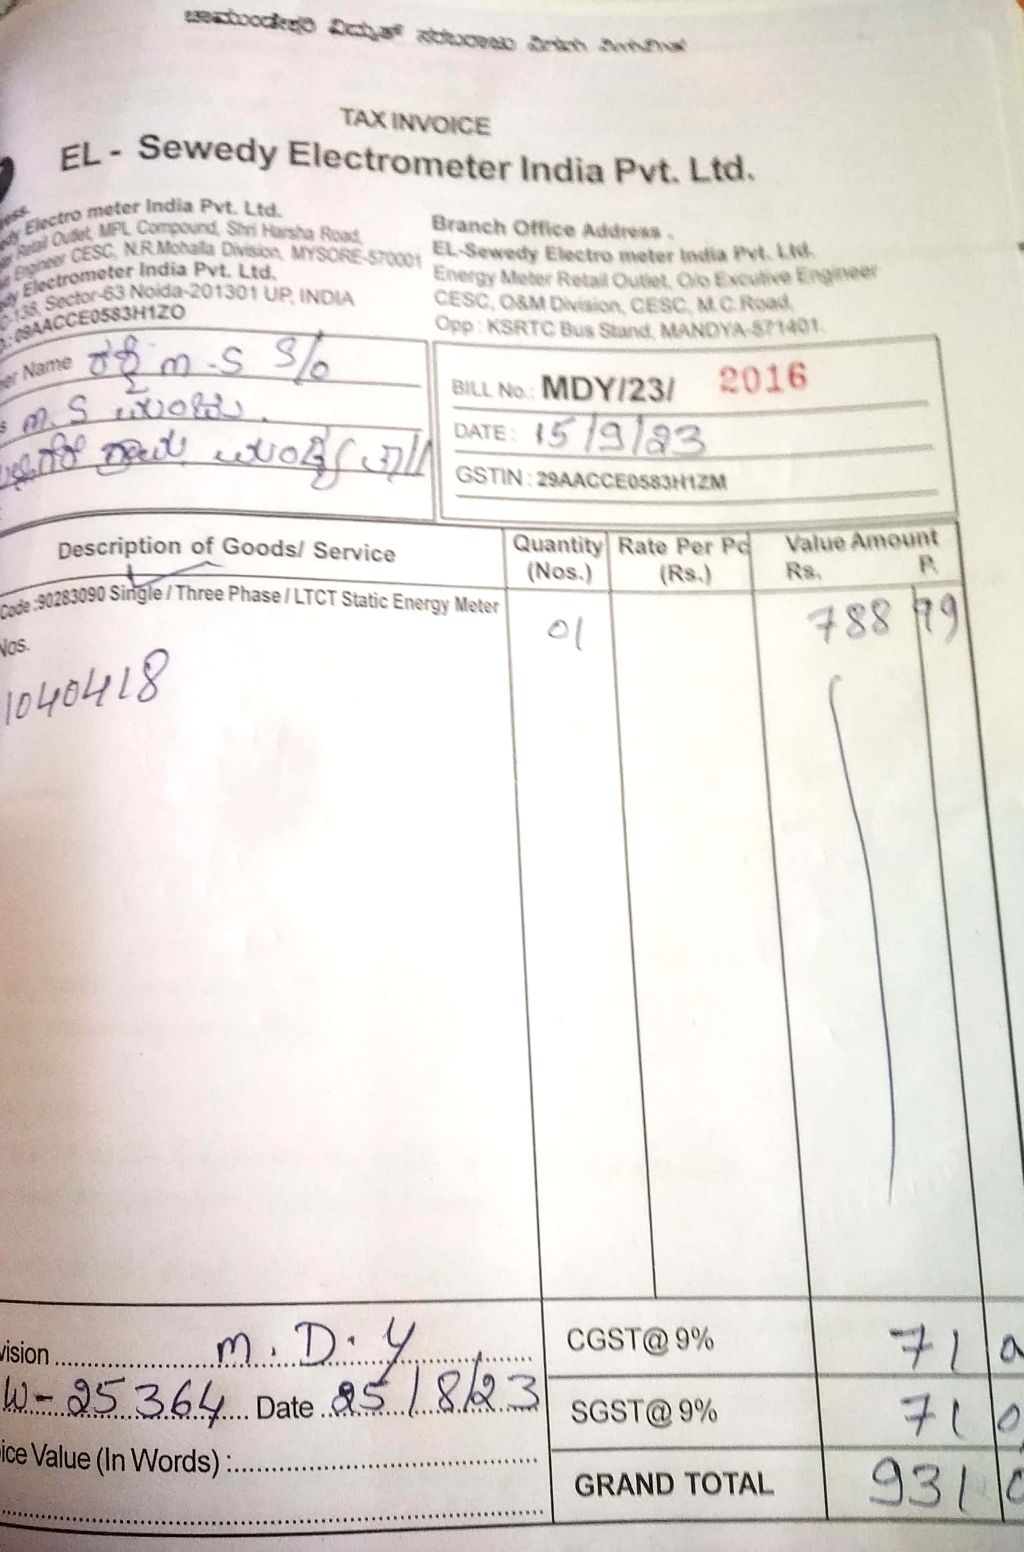 TAX INVOICE
EL - Sewedy Electrometer India Pvt. Ltd.
Electro meter India Pvt. Ltd.
Retail Outlet, MPL Compound, Shri Harsha Road,
Engineer CESC, N.R.Mohalla Division, MYSORE-570001
Electrometer India Pvt. Ltd.
Sector-63 Noida-201301 UP, INDIA
09AACCE0583H1ZO
Branch Office Address .
EL-Sewedy Electro meter India Pvt. Ltd.
Energy Meter Retail Outlet, O/o Excutive Engineer
CESC, O&M Division, CESC, M.C.Road,
Opp : KSRTC Bus Stand, MANDYA-571401.
Name ರವಿ m.S S/o
m.S
BILL No.: MDY/23/ 2016
DATE : 15/9/23
GSTIN : 29AACCE0583H1ZM
Description of Goods/ Service Quantity (Nos.) Rate Per Pc (Rs.) Value Amount Rs. P.
Code :90283090 Single / Three Phase / LTCT Static Energy Meter 01 788 99
Nos.
1040418
m.D.y CGST@ 9% 71
W-25364 Date 25/8/23 SGST@ 9% 71
Value (In Words) : GRAND TOTAL 931